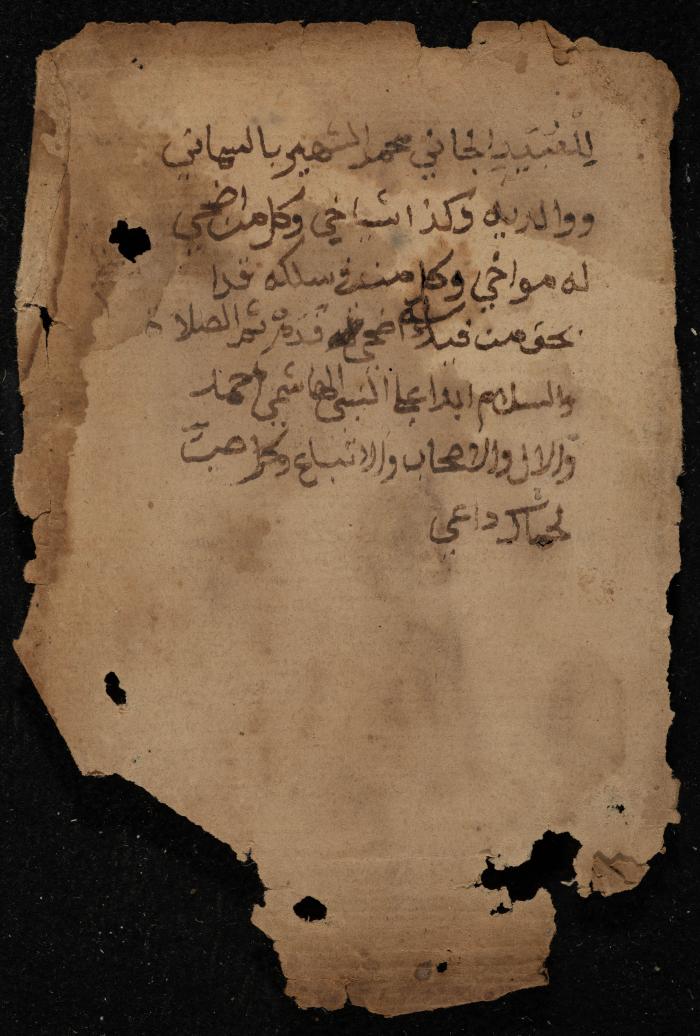 للعبيد الجاني محمد الشهير بالسماني
ووالديه وكذا اشياخي وكل من اضحي
له مواخي وكل من في سلكه قد
بحق من فيه اضحي قدم ثم الصلا
والسلام ابدا علي النبي الهاشمي احمد
والال والاصحاب والاتباع وكل
داعي